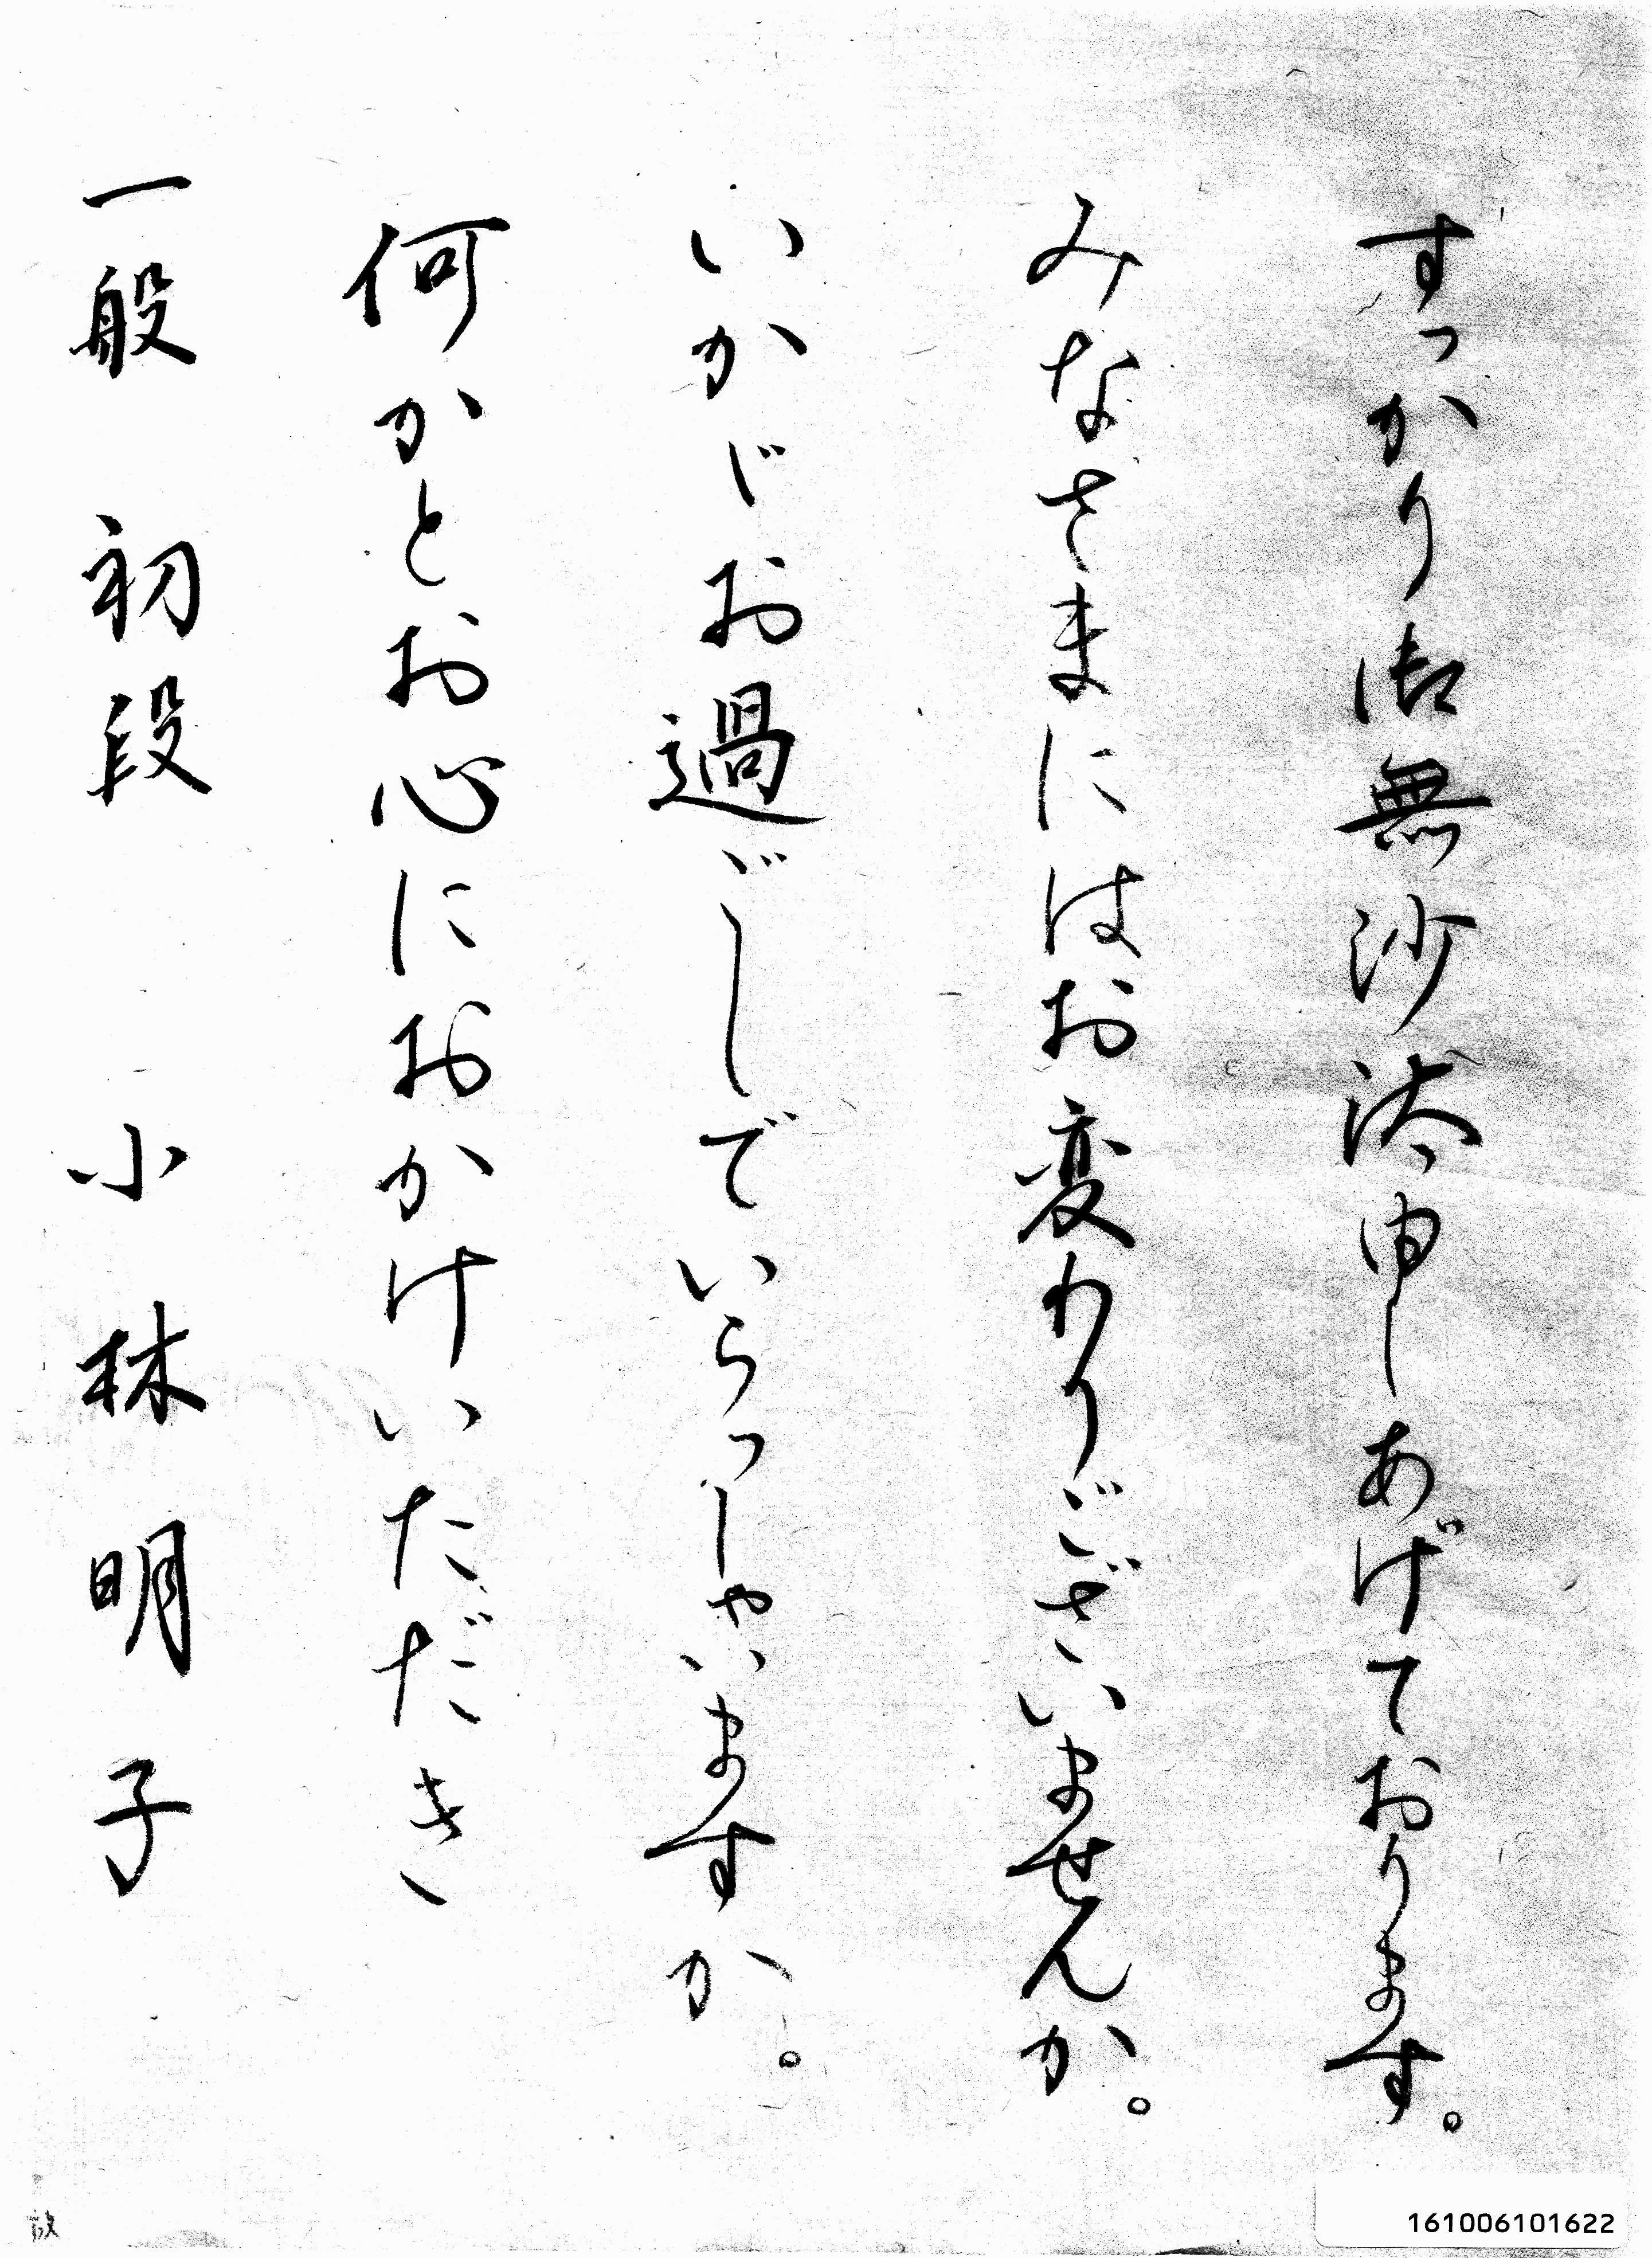 すっかり御無沙汰申しあげております。
みなさまにはお変わりございませんか。
いかゞお過ごしでいらっしゃいますか。
何かとお心におかけいただき
一般 初段 小林明子
161006101622